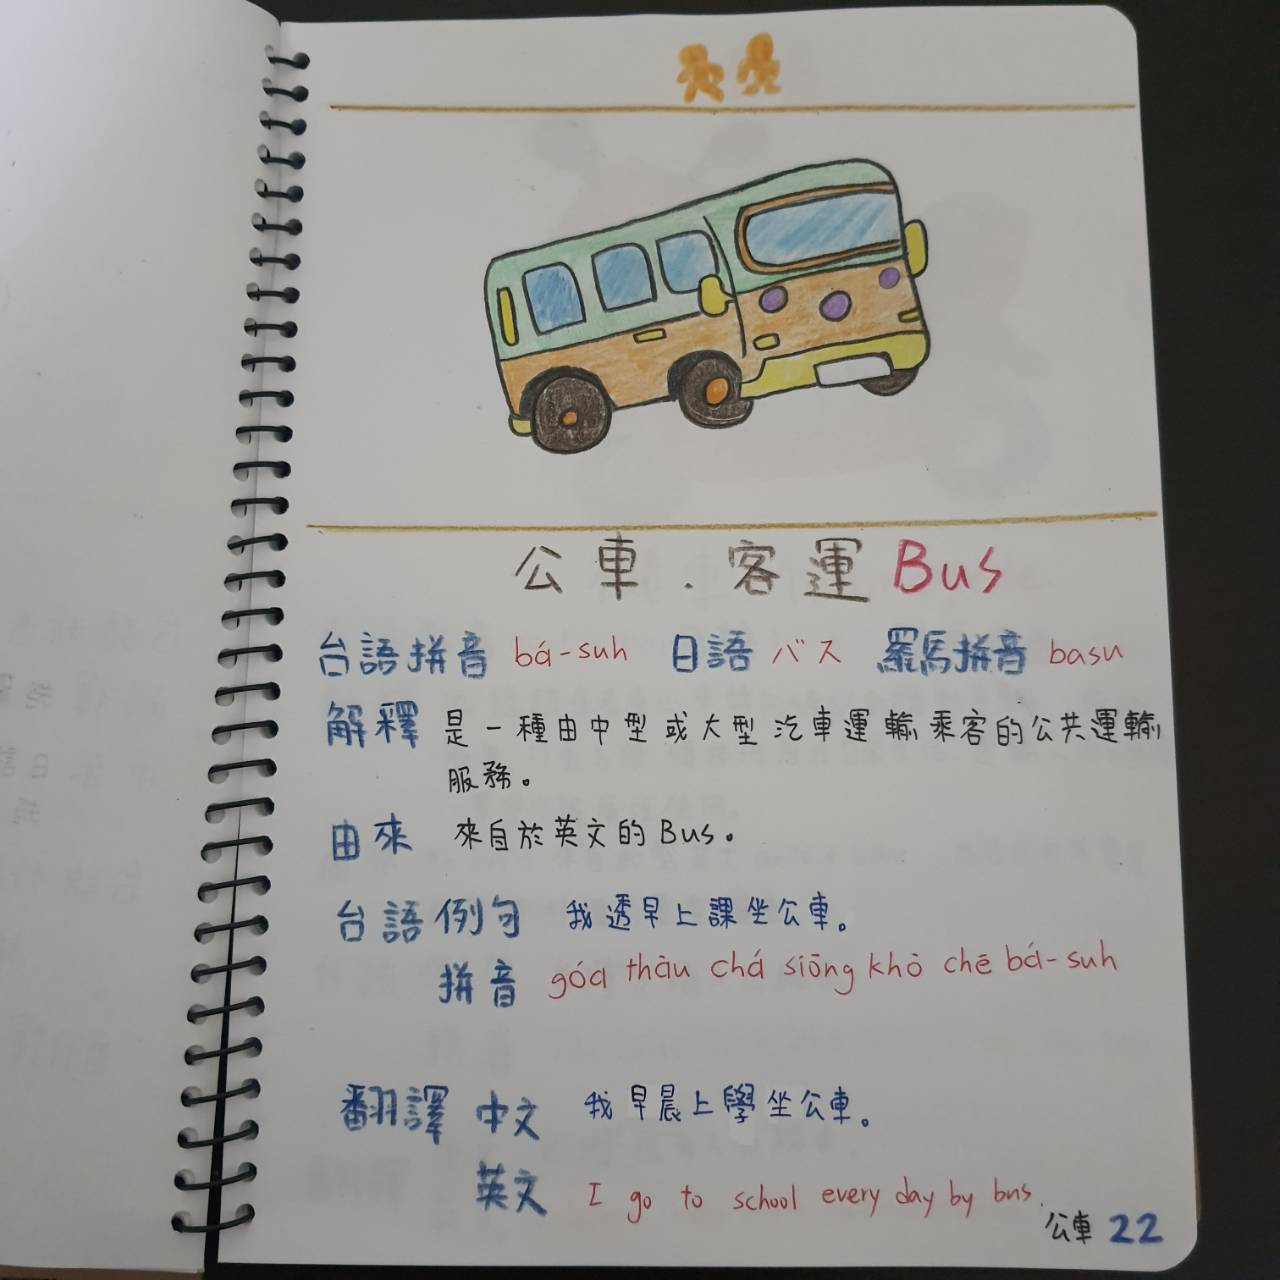 公車．客運 Bus
台語拼音 bá-suh 日語 バス 羅馬拼音 basu
解釋 是一種由中型或大型汽車運輸乘客的公共運輸
服務。
由來 來自於英文的Bus。
台語例句 我透早上課坐公車。
拼音 góa thàu chá siōng khò chē bá-suh
翻譯 中文 我早晨上學坐公車。
英文 I go to school every day by bus.
公車 22